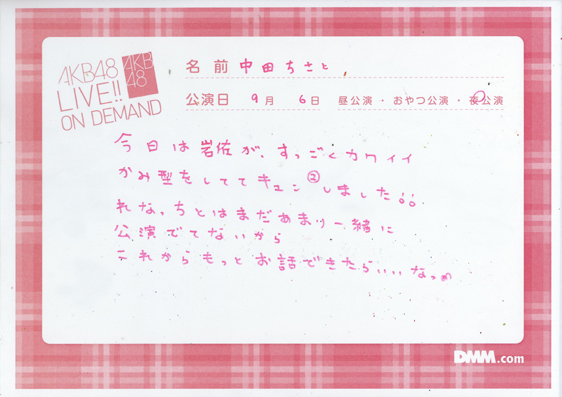 AKB48
LIVE!!
ON DEMAND
AKB
48
名前 中田ちさと
公演日 9月 6日 昼公演・おやつ公演・夜公演
今日は岩佐が、すっごくカワイイ
かみ型をしててキュン②しました。。
れなっちとはまだあまり一緒に
公演でてないから
これからもっとお話できたらいいなっ
DMM.com